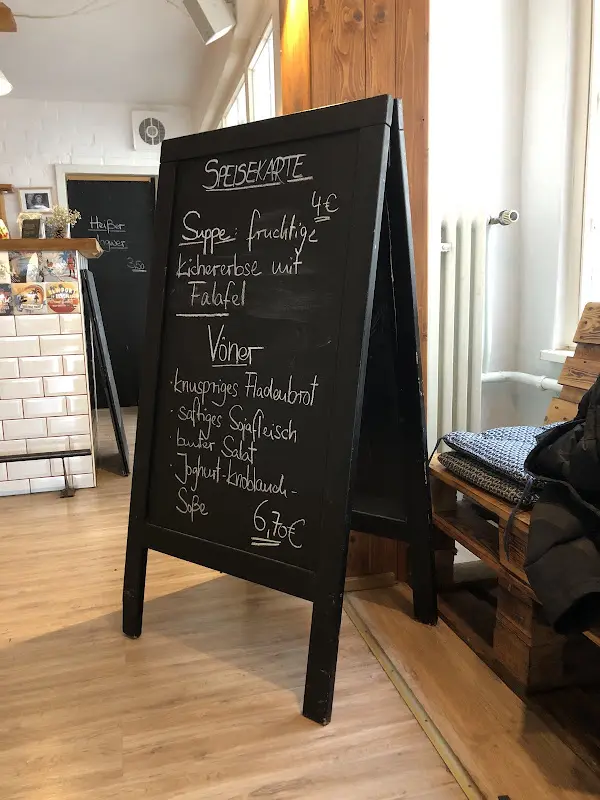 SPEISEKARTE
4€
Suppe: fruchtige
Kichererbse mit
Falafel
Vöner
· knuspriges Fladenbrot
· saftiges Sojafleisch
· bunter Salat
· Joghurt-Knoblauch-
Soße
6,70€
Heißer
Ingwer
3,50